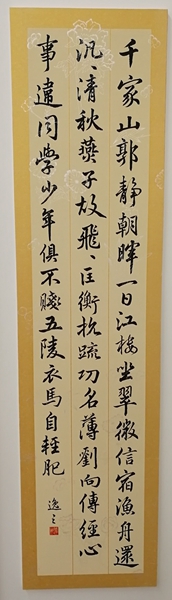 千家山郭靜朝暉一日江樓坐翠微信宿漁舟還
汎〻清秋燕子故飛〻匡衡抗疏功名薄劉向傳經心
事違同學少年俱不賤五陵衣馬自輕肥
逸之